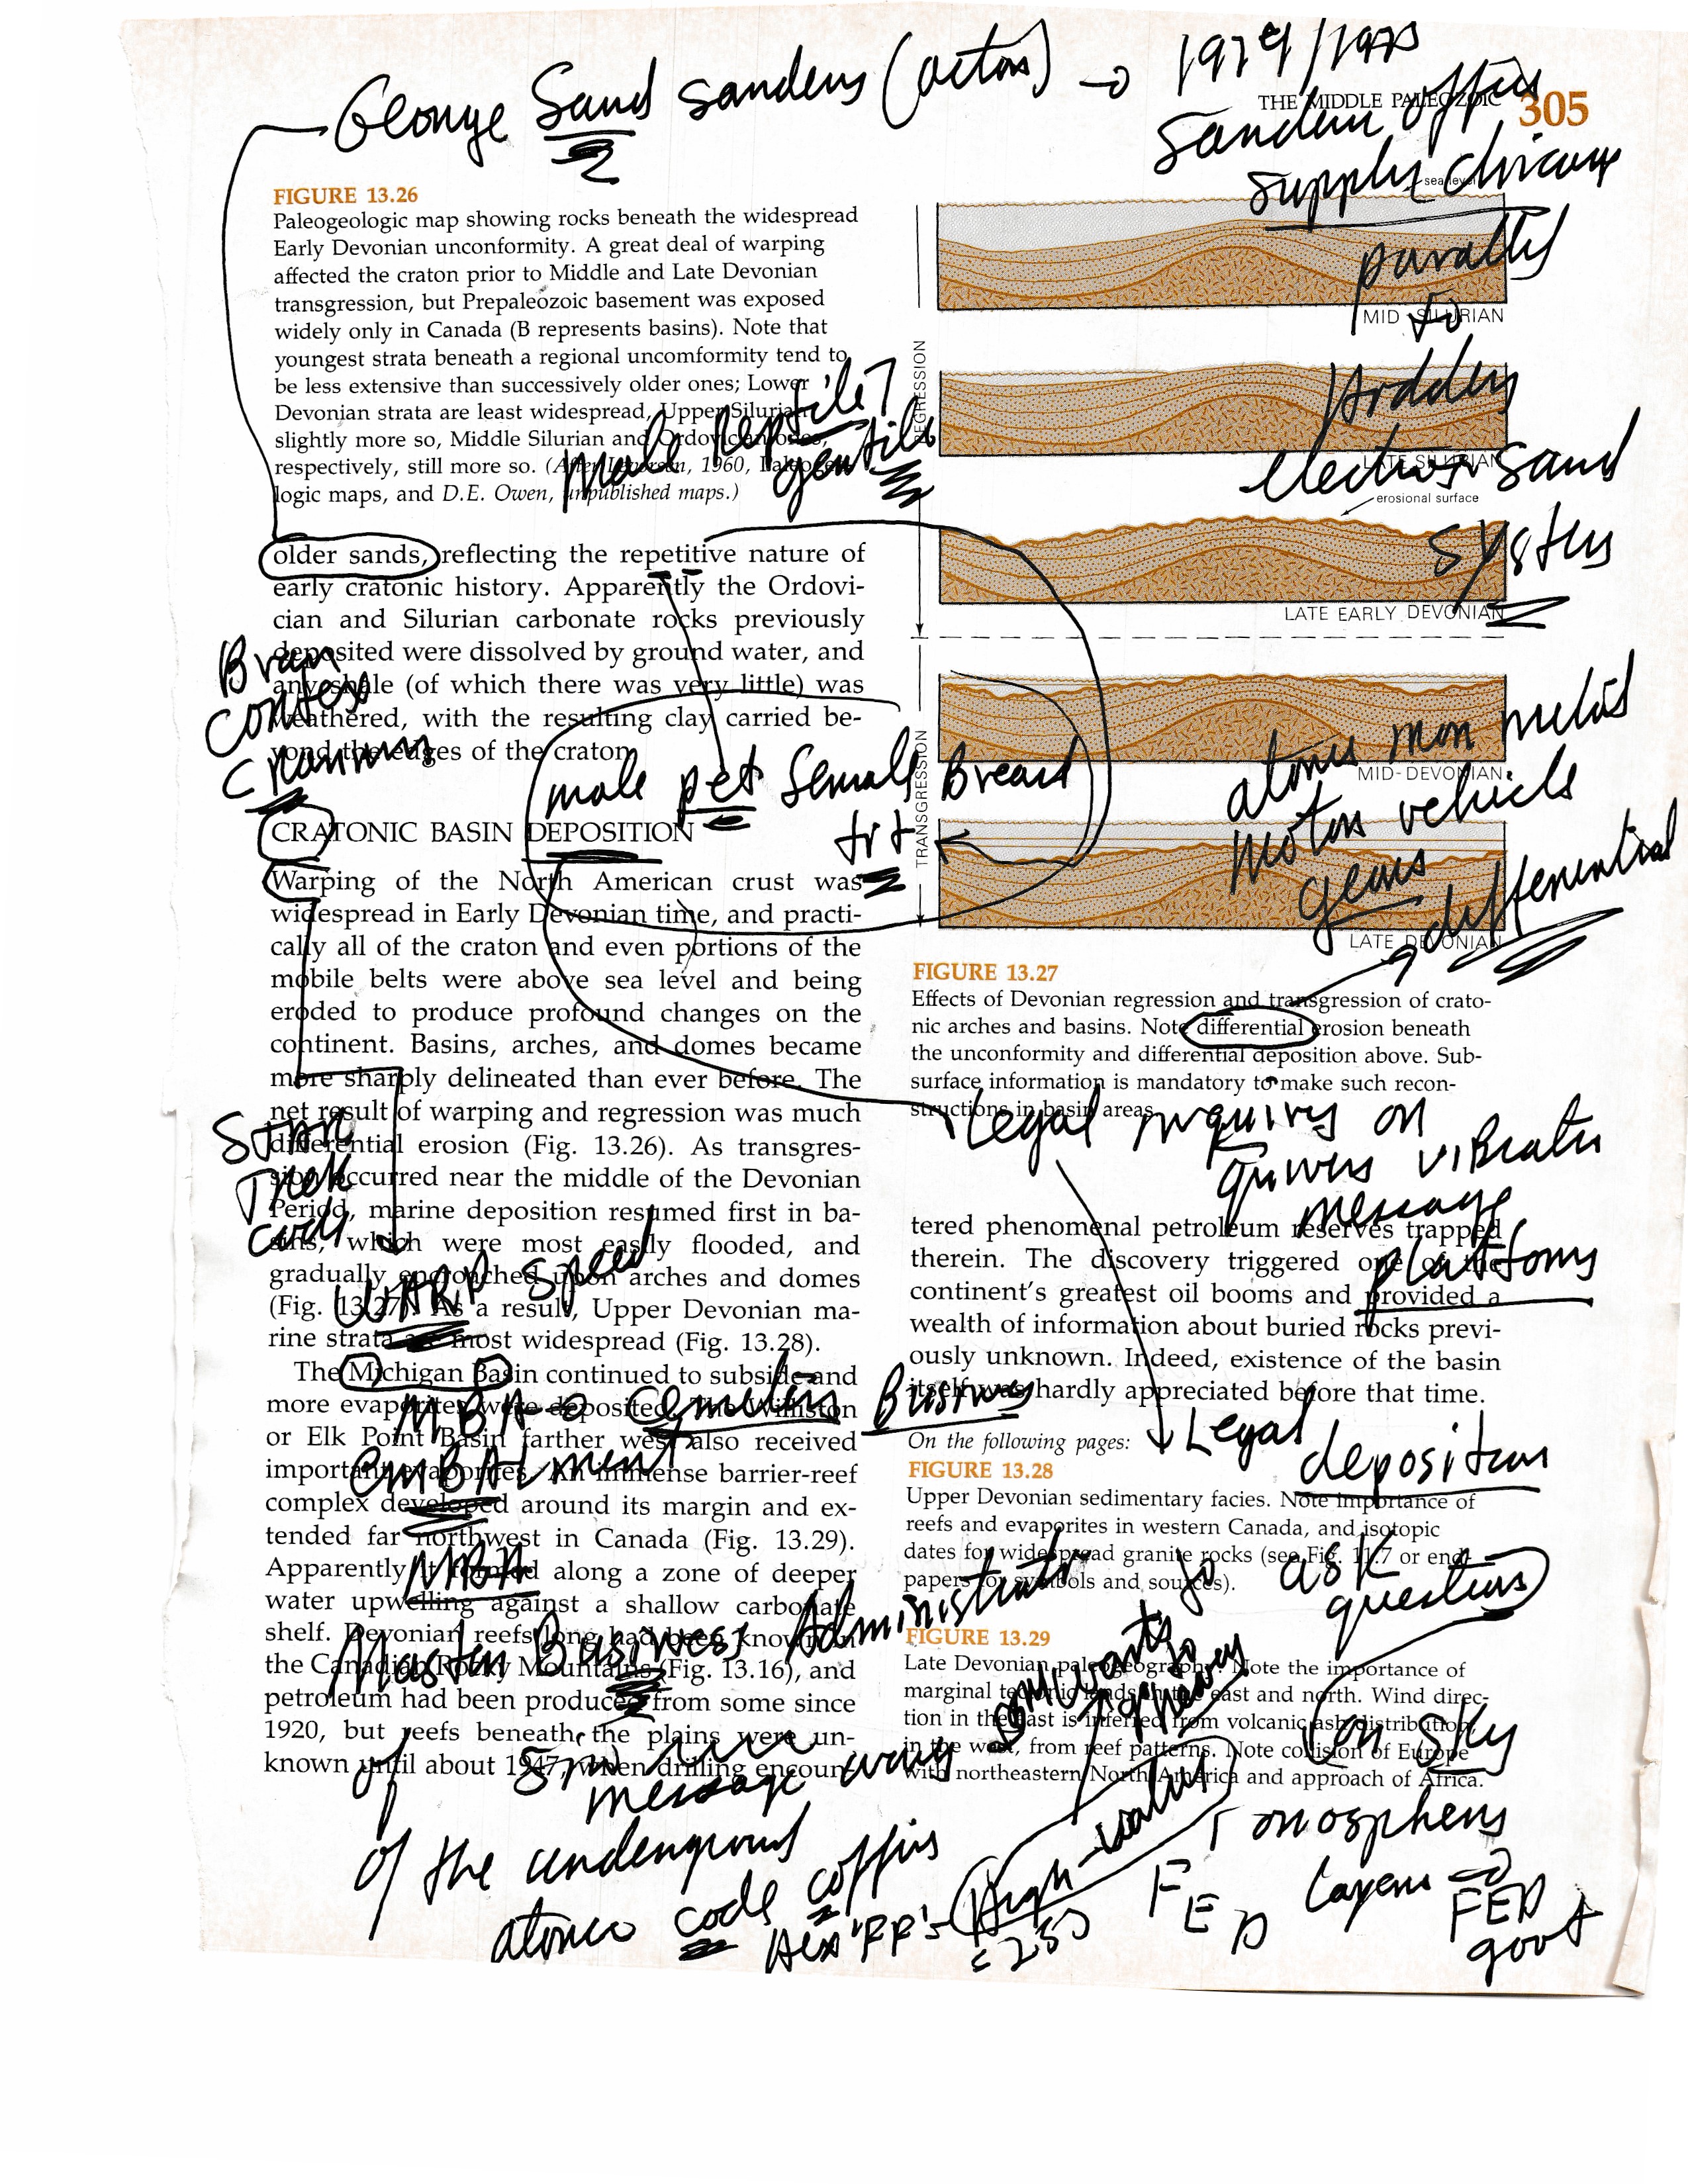 George Sand Sanders (actor) → 1974/1975
THE MIDDLE PALEOZOIC 305
Sanders office
supply chicago
FIGURE 13.26
Paleogeologic map showing rocks beneath the widespread
Early Devonian unconformity. A great deal of warping
affected the craton prior to Middle and Late Devonian
transgression, but Prepaleozoic basement was exposed
widely only in Canada (B represents basins). Note that
youngest strata beneath a regional uncomformity tend to
be less extensive than successively older ones; Lower
Devonian strata are least widespread, Upper Silurian
slightly more so, Middle Silurian and Ordovician ones,
respectively, still more so. (After Levorsen, 1960, Paleogeo-
logic maps, and D.E. Owen, unpublished maps.)
male reptile?
gentile
older sands, reflecting the repetitive nature of
early cratonic history. Apparently the Ordovi-
cian and Silurian carbonate rocks previously
deposited were dissolved by ground water, and
any shale (of which there was very little) was
weathered, with the resulting clay carried be-
yond the edges of the craton.
Brain
Cortex
Cranium
male pet female Breast
trt
CRATONIC BASIN DEPOSITION
Warping of the North American crust was
widespread in Early Devonian time, and practi-
cally all of the craton and even portions of the
mobile belts were above sea level and being
eroded to produce profound changes on the
continent. Basins, arches, and domes became
more sharply delineated than ever before. The
net result of warping and regression was much
differential erosion (Fig. 13.26). As transgres-
sion occurred near the middle of the Devonian
Period, marine deposition resumed first in ba-
sins, which were most easily flooded, and
gradually encroached upon arches and domes
(Fig. 13.27). As a result, Upper Devonian ma-
rine strata are most widespread (Fig. 13.28).
Star
Trek
code
WARP Speed
The Michigan Basin continued to subside and
more evaporites were deposited. The Williston
or Elk Point Basin farther west also received
important evaporites. An immense barrier-reef
complex developed around its margin and ex-
tended far northwest in Canada (Fig. 13.29).
Apparently it formed along a zone of deeper
water upwelling against a shallow carbonate
shelf. Devonian reefs long had been known in
the Canadian Rocky Mountains (Fig. 13.16), and
petroleum had been produced from some since
1920, but reefs beneath the plains were un-
known until about 1947, when drilling encoun-
MBA
Business
emBAlment
MBA
Master Business Administrate
of
message
of the underground
code coffins
sea level
MID-SILURIAN
LATE SILURIAN
erosional surface
LATE EARLY DEVONIAN
MID-DEVONIAN
LATE DEVONIAN
REGRESSION
TRANSGRESSION
to
electron sand
system
atoms non metals
motor vehicle
gears
differential
FIGURE 13.27
Effects of Devonian regression and transgression of crato-
nic arches and basins. Note differential erosion beneath
the unconformity and differential deposition above. Sub-
surface information is mandatory to make such recon-
structions in basin areas.
Legal inquiry on
message
platforms
tered phenomenal petroleum reserves trapped
therein. The discovery triggered one of the
continent's greatest oil booms and provided a
wealth of information about buried rocks previ-
ously unknown. Indeed, existence of the basin
itself was hardly appreciated before that time.
Legal
deposition
On the following pages:
FIGURE 13.28
Upper Devonian sedimentary facies. Note importance of
reefs and evaporites in western Canada, and isotopic
dates for widespread granite rocks (see Fig. 11.7 or end
papers for symbols and sources).
to ask
questions
FIGURE 13.29
Late Devonian paleogeography. Note the importance of
marginal tectonic lands in the east and north. Wind direc-
tion in the east is inferred from volcanic ash distribution,
in the west, from reef patterns. Note collision of Europe
with northeastern North America and approach of Africa.
on sky
Ionosphere
FED layers → FED
govt
High
= 255